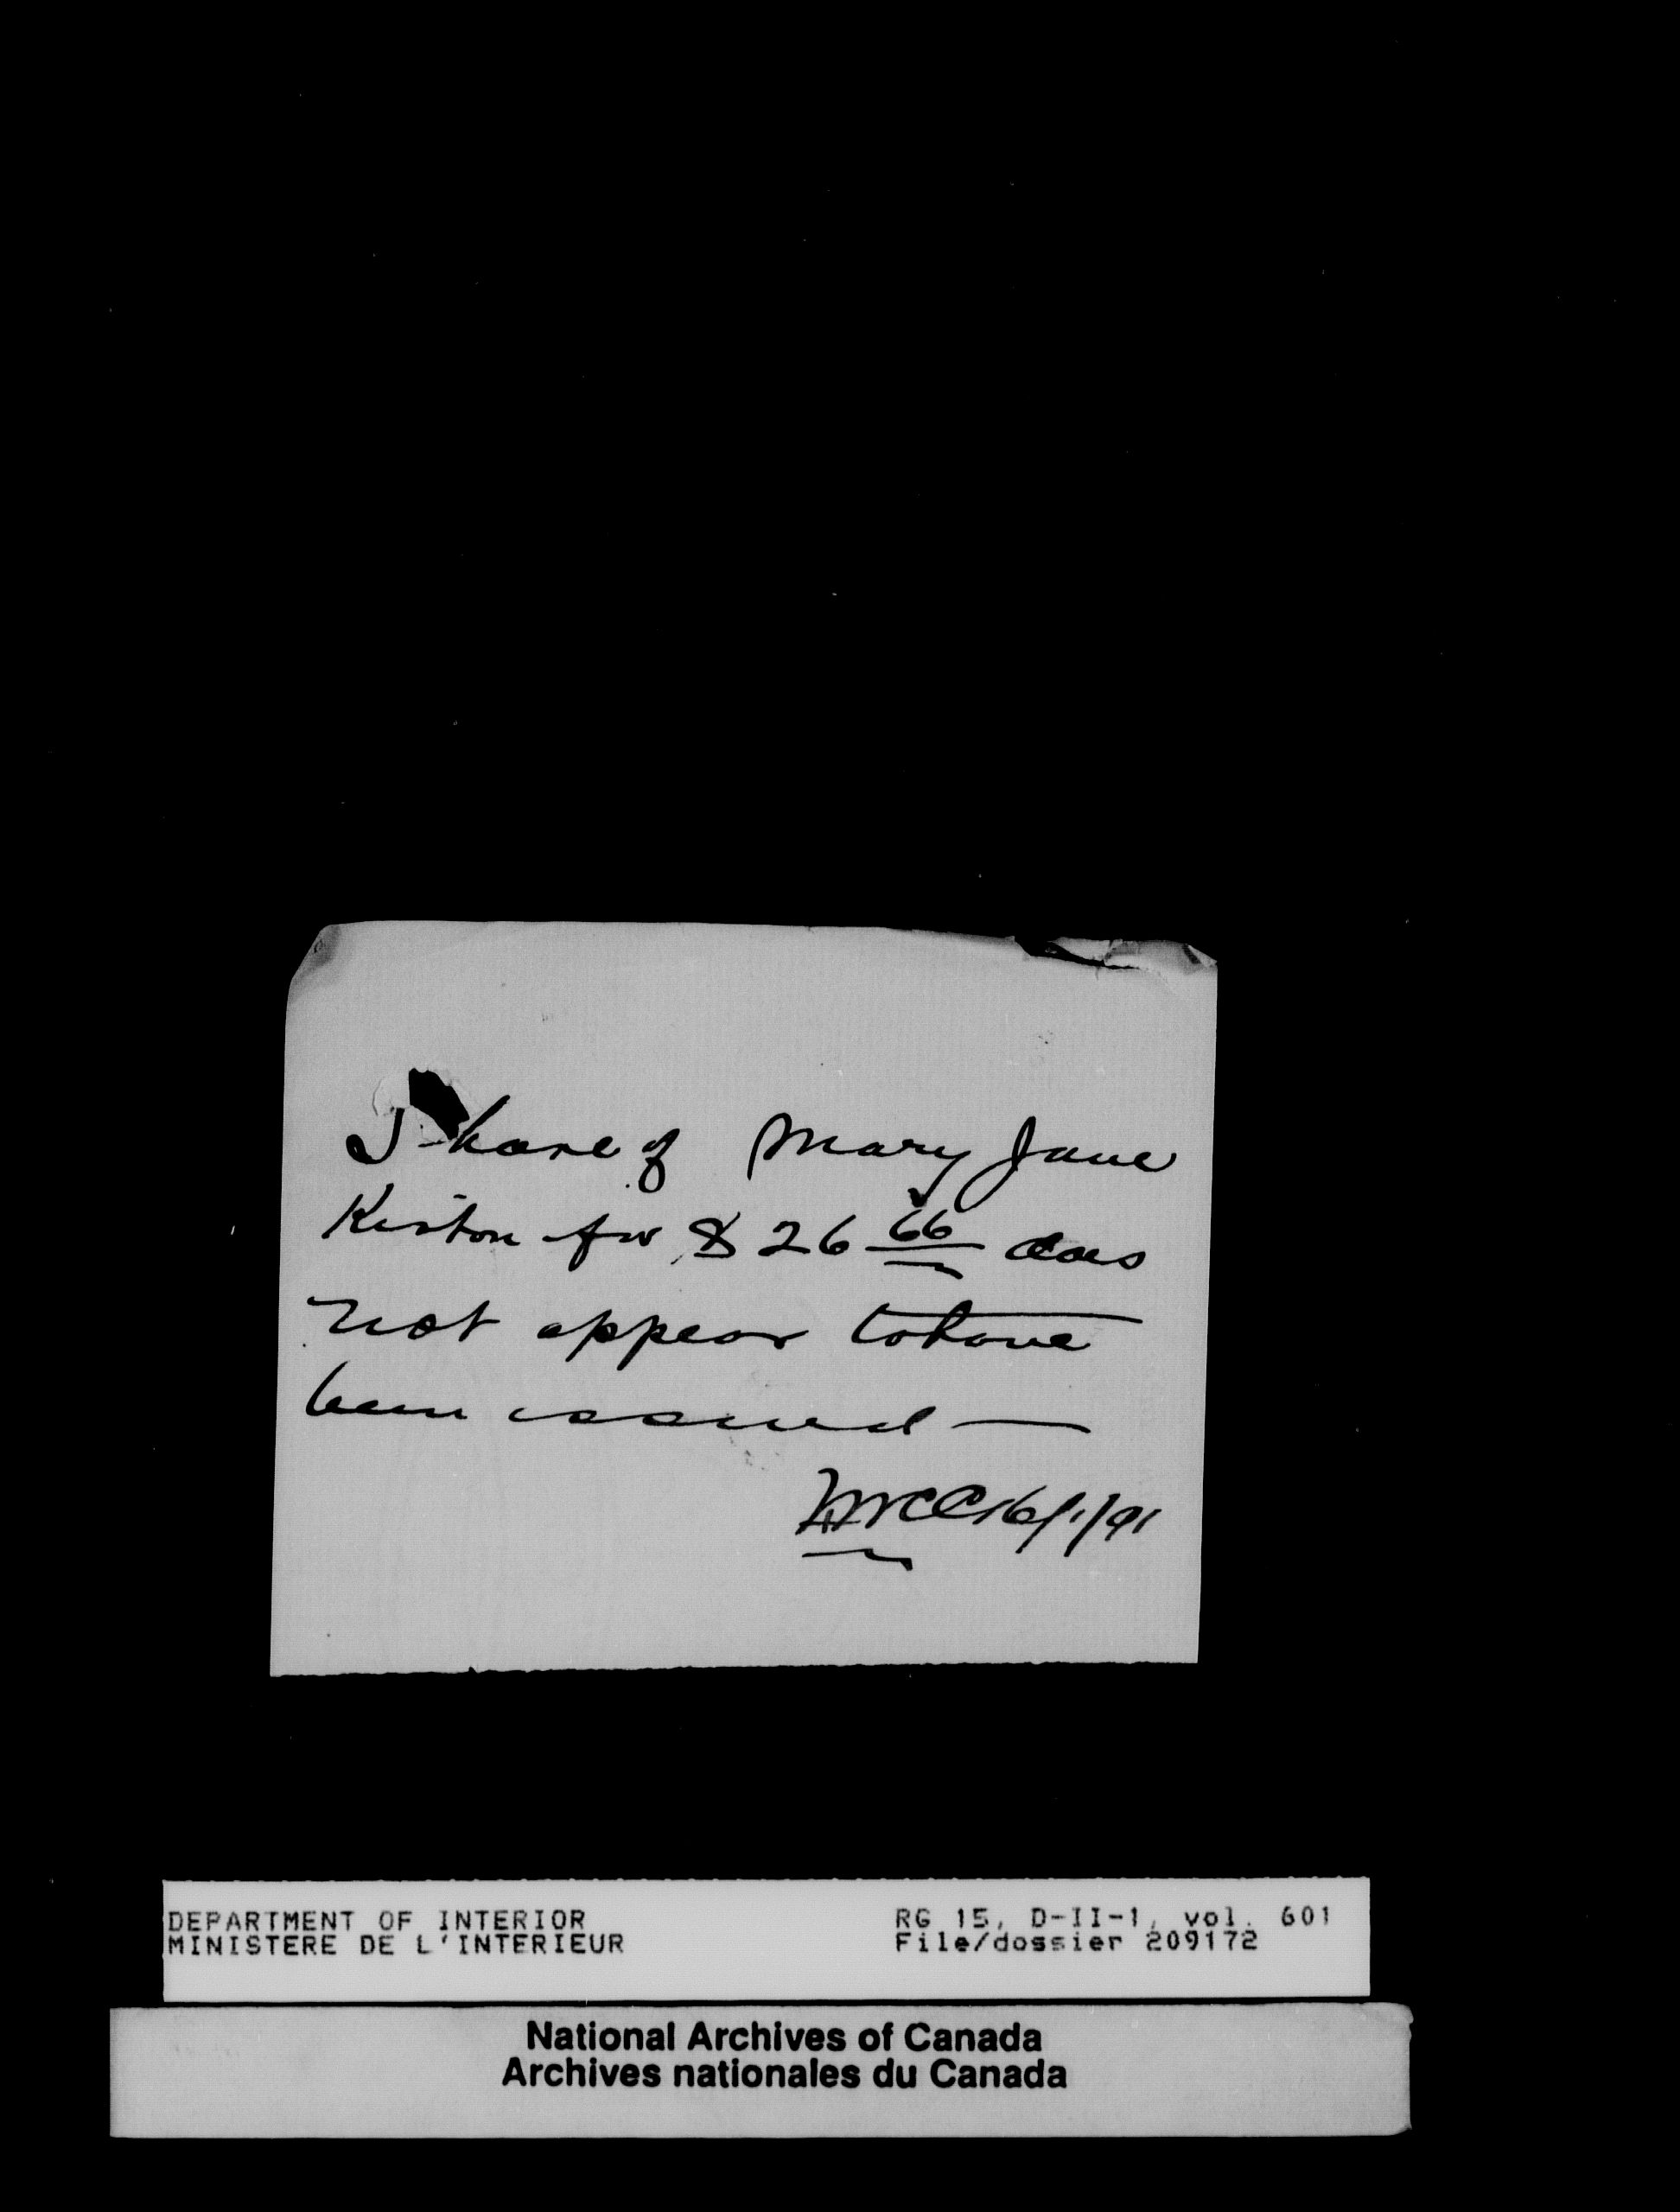 Share of Mary Jane
for $ 26 66 does
not appear to have
been issued —
16/1/91
DEPARTMENT OF INTERIOR
MINISTERE DE L'INTERIEUR
RG 15, D-II-1, vol. 601
File/dossier 209172
National Archives of Canada
Archives nationales du Canada